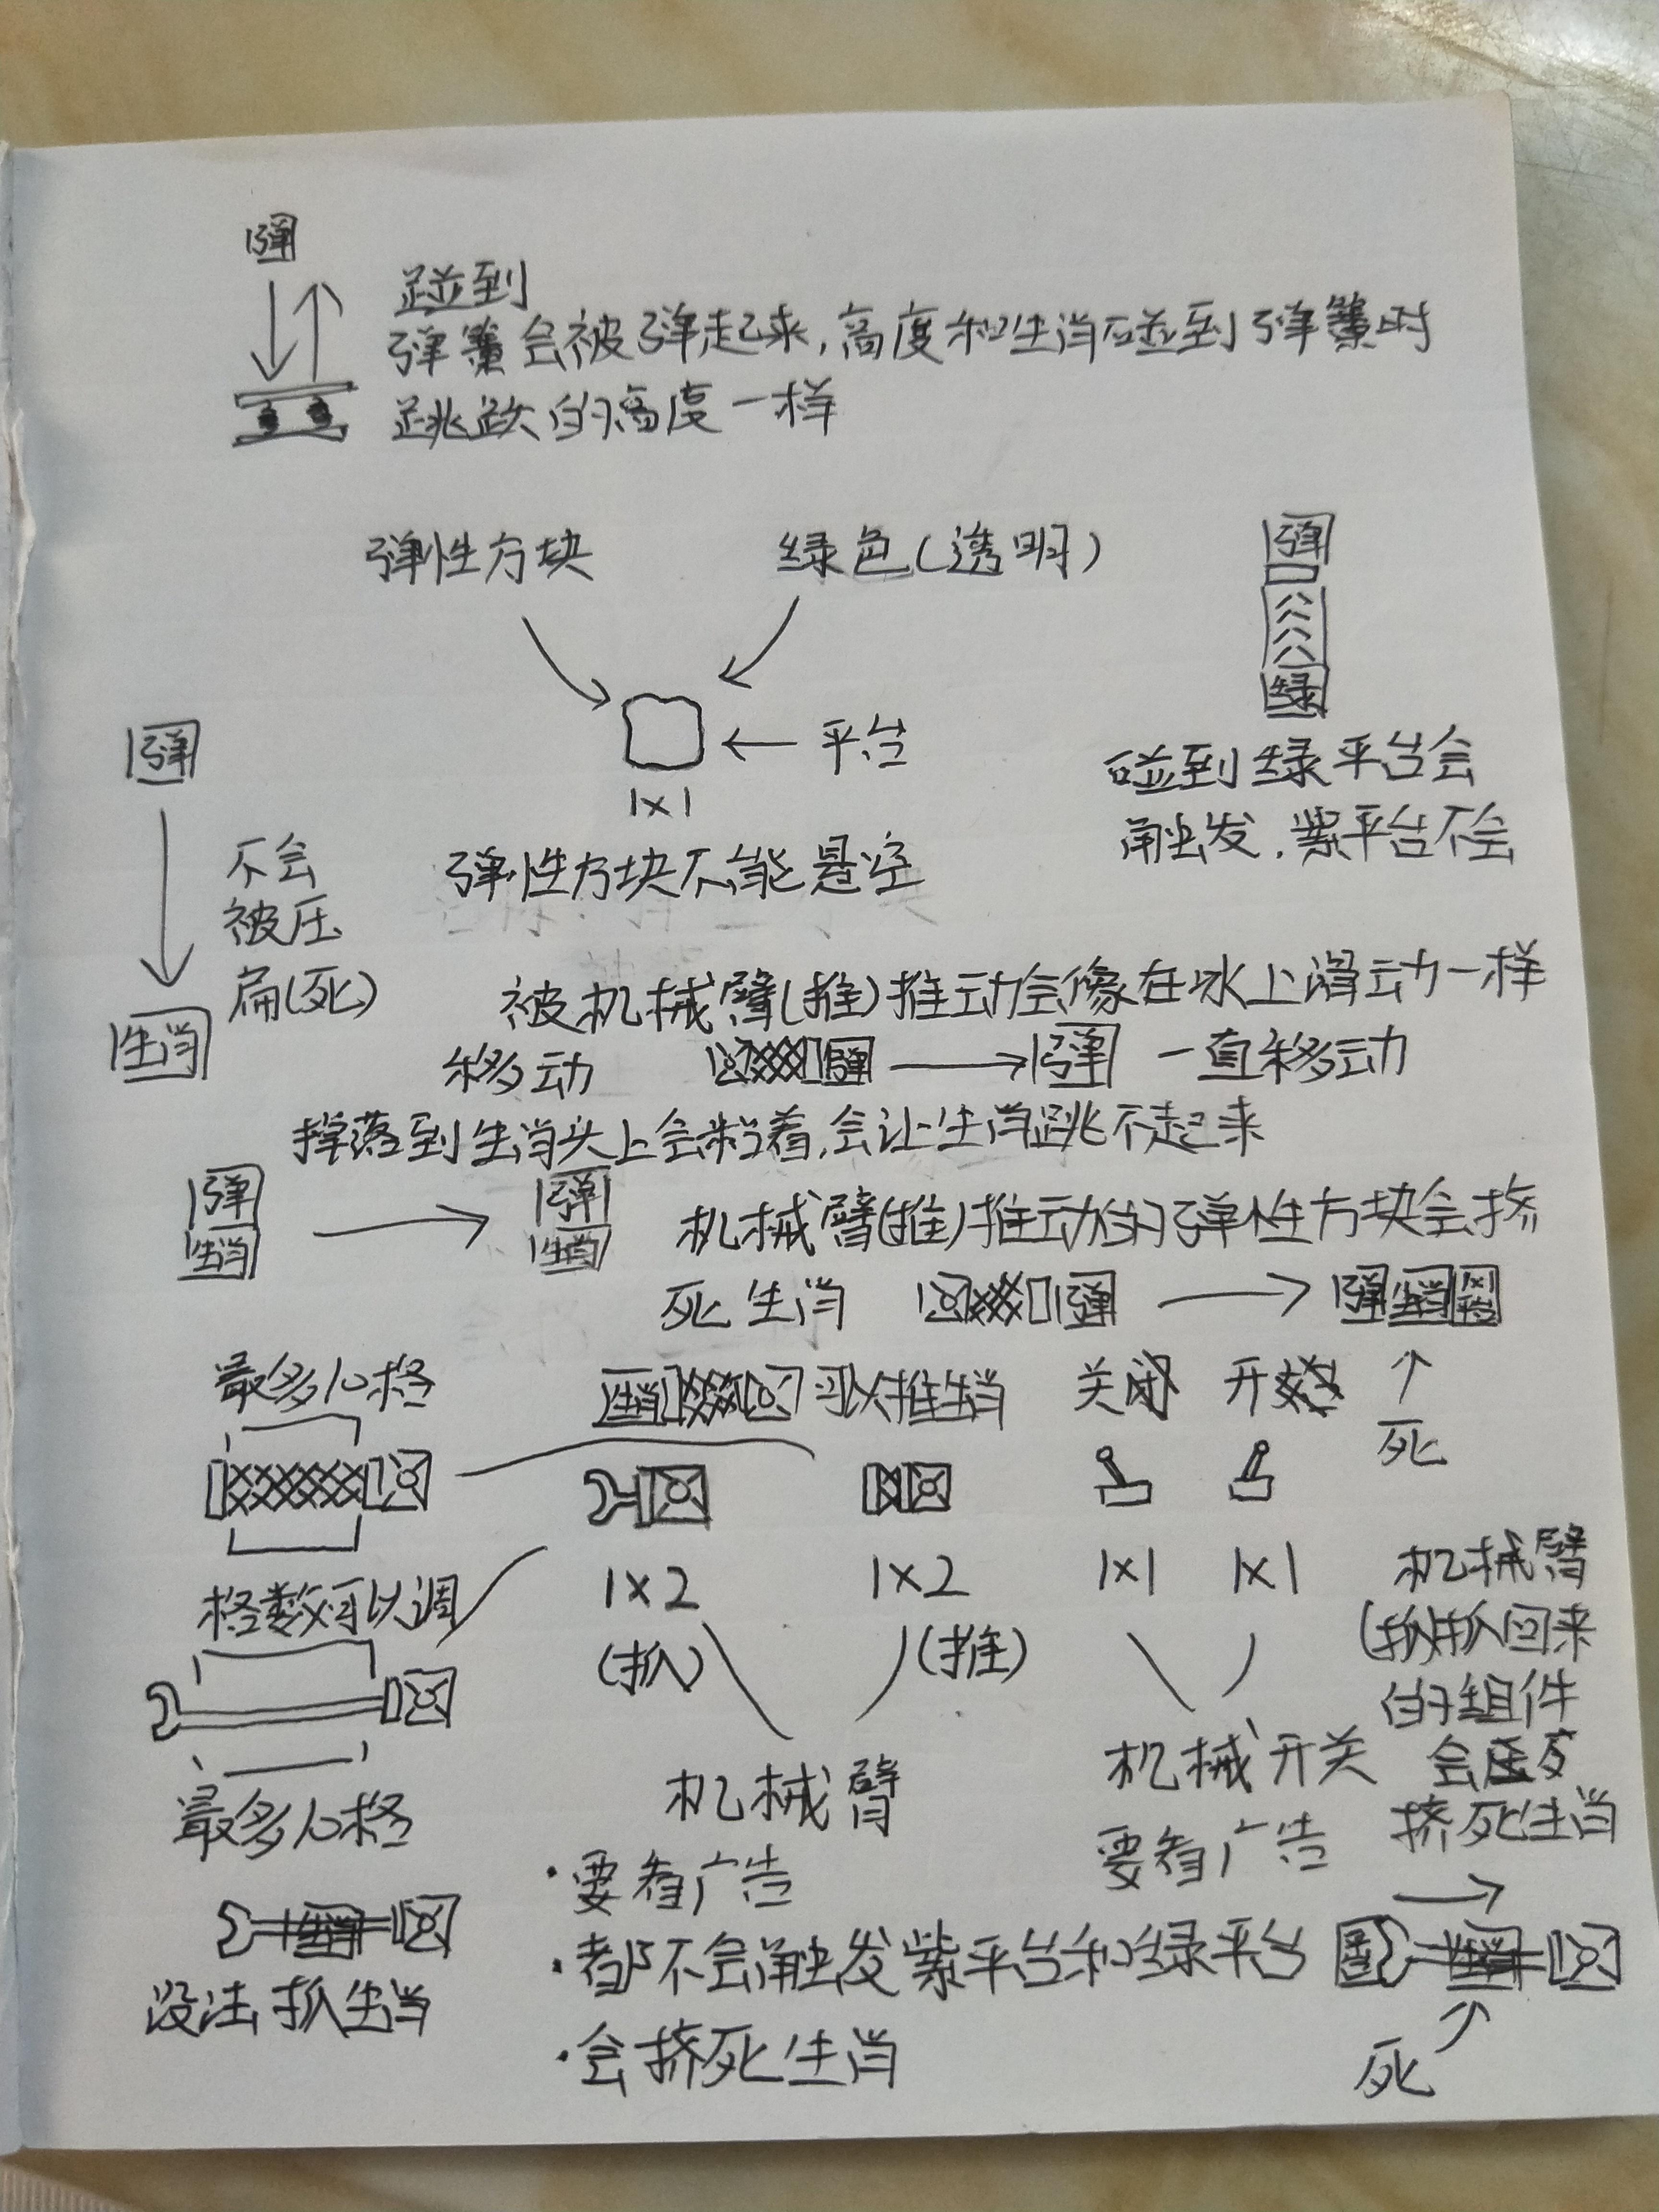 弹
碰到
弹簧会被弹起来,高度和生肖碰到弹簧时
跳跃的高度一样
弹性方块
绿色(透明)
弹
绿
平台
1×1
碰到绿平台会
触发,紫平台不会
弹
不会
被压
扁(死)
生肖
弹性方块不能悬空
被机械臂(推)推动会像在冰上滑动一样
移动
弹
弹
一直移动
掉落到生肖头上会粘着,会让生肖跳不起来
弹
生肖
弹
生肖
机械臂(推)推动的弹性方块会挤
死生肖
弹
弹
生肖
死
最多10格
生肖
可以推生肖
关闭
开始
格数可以调
1×2
(抓)
1×2
(推)
1×1
1×1
最多10格
机械臂
·要看广告
·都不会触发紫平台和绿平台
·会挤死生肖
机械开关
要看广告
机械臂
(抓)抓回来
的组件
会
挤死生肖
生肖
没法抓生肖
生肖
死